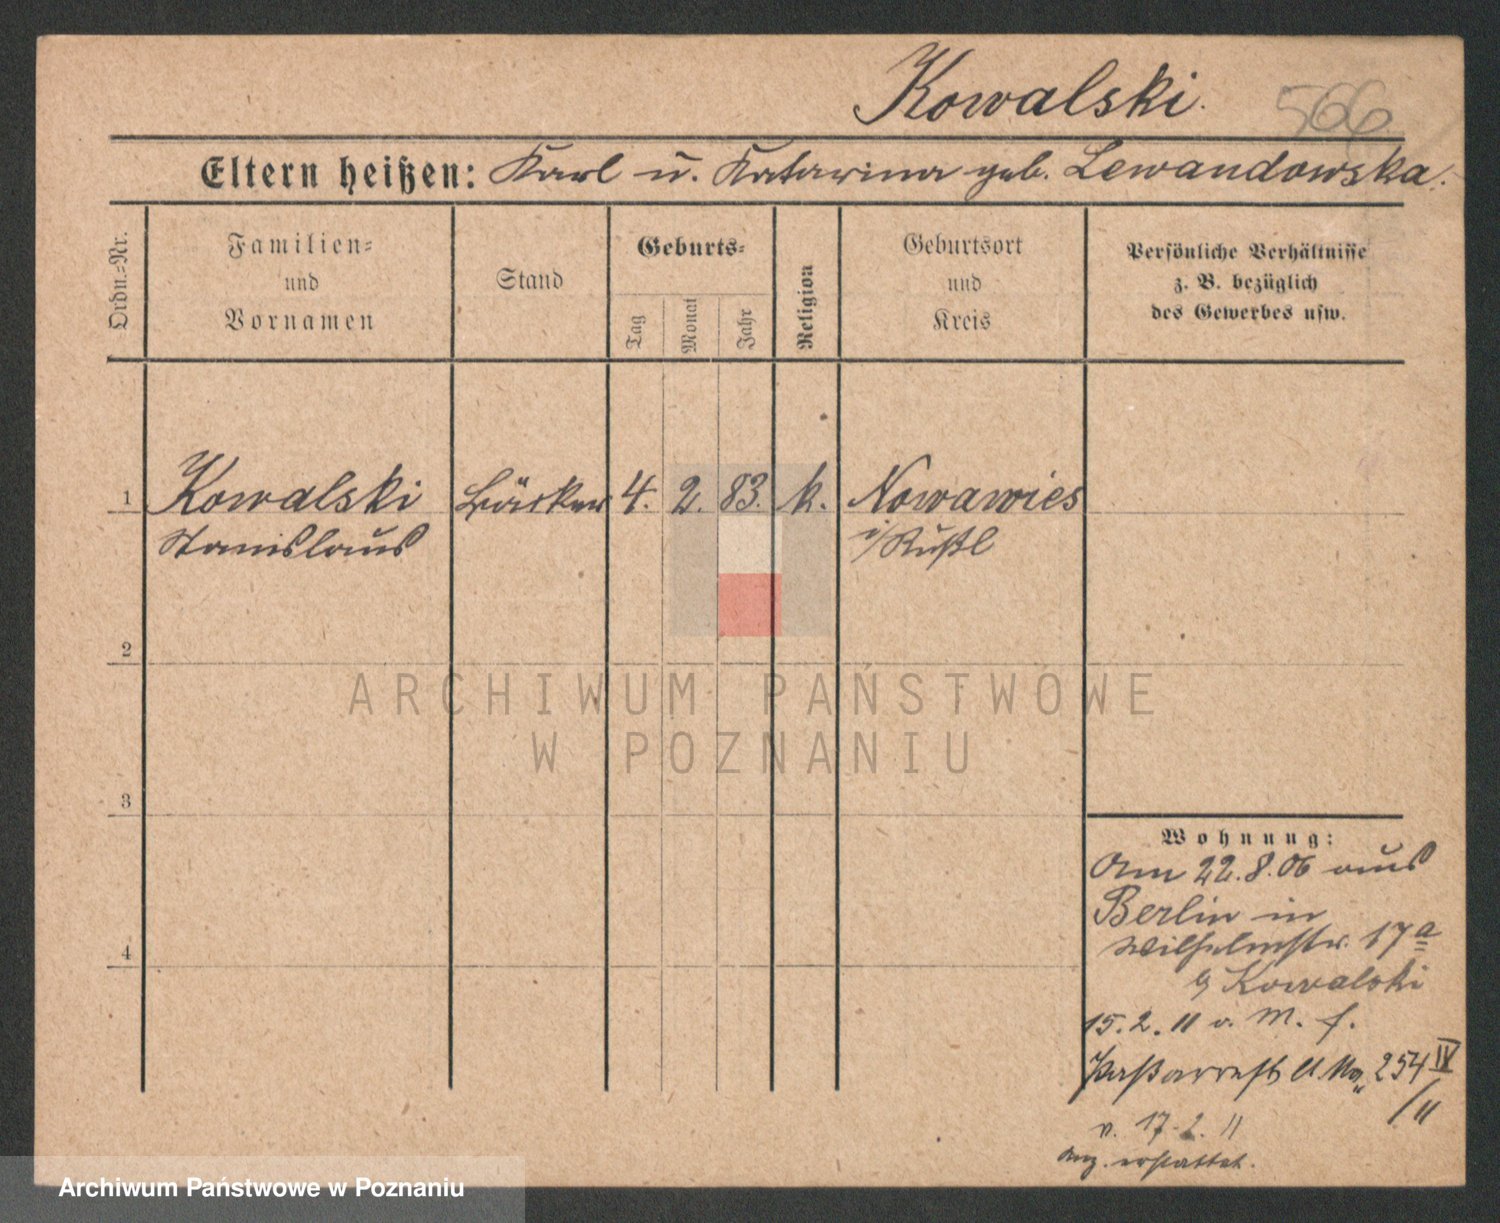 Kowalski.
566
Eltern heißen: Karl u. Katarina geb. Lewandowska.
Ordn.-Nr.
Familien-
und
Vornamen
Stand
Geburts-
Tag
Monat
Jahr
Religion
Geburtsort
und
Kreis
Persönliche Verhältnisse
z. B. bezüglich
des Gewerbes usw.
1 Kowalski Bäcker 4. 2. 83. k. Nowawies
Stanislaus i/Rußl
2
3
4
ARCHIWUM PAŃSTWOWE
W POZNANIU
Wohnung:
Am 22.8.06 aus
Berlin in
Wilhelmstr. 17a
Kowalski
15.2.11 v. M. f.
254 IV
/11
v. 17.2.11
Anz. erstattet.
Archiwum Państwowe w Poznaniu